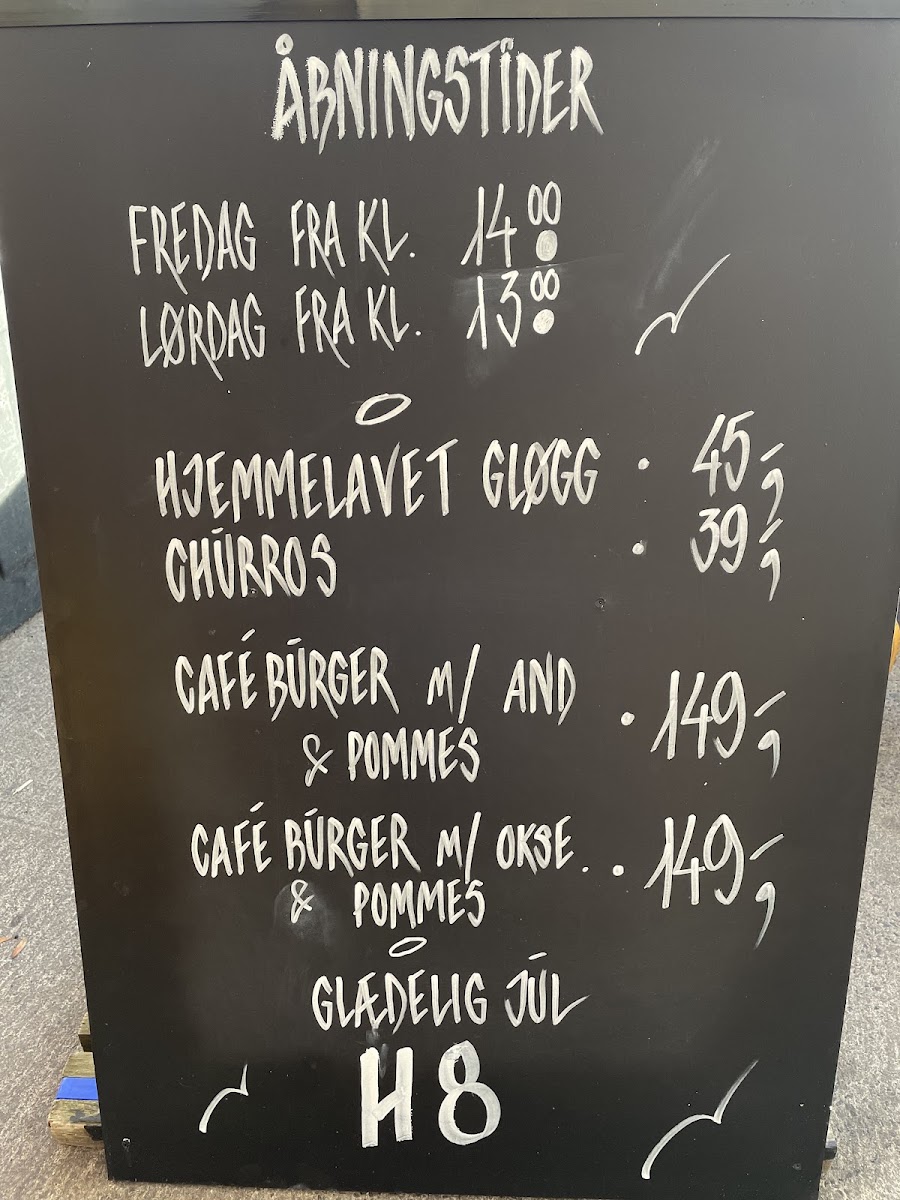 ÅBNINGSTIDER
FREDAG FRA KL. 14.00
LØRDAG FRA KL. 13.00
HJEMMELAVET GLØGG . 45,-
CHURROS . 39,-
CAFÉ BURGER M/ AND . 149,-
& POMMES
CAFÉ BURGER M/ OKSE . . 149,-
& POMMES
GLÆDELIG JUL
H8